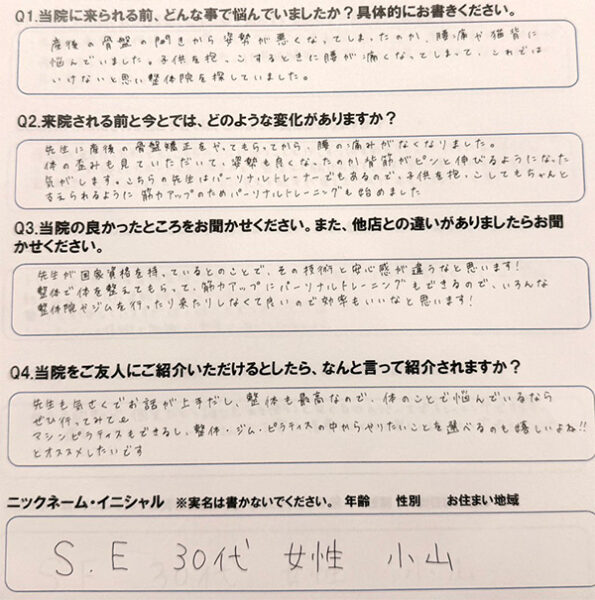 Q1.当院に来られる前、どんな事で悩んでいましたか？具体的にお書きください。
産後の骨盤の開きから姿勢が悪くなってしまったのか、腰痛や猫背に
悩んでいました。子供を抱っこするときに腰が痛くなってしまって、これでは
いけないと思い整体院を探していました。
Q2.来院される前と今とでは、どのような変化がありますか？
先生に産後の骨盤矯正をやってもらってから、腰の痛みがなくなりました。
体の歪みも見ていただいて、姿勢も良くなったのか背筋がピンと伸びるようになった
気がします。こちらの先生はパーソナルトレーナーでもあるので、子供を抱っこしてもちゃんと
支えられるように筋力アップのためパーソナルトレーニングも始めました
Q3.当院の良かったところをお聞かせください。また、他店との違いがありましたらお聞
かせください。
先生が国家資格を持っているとのことで、その技術と安心感が違うなと思います!
整体で体を整えてもらって、筋力アップにパーソナルトレーニングもできるので、いろんな
整体院やジムを行ったり来たりしなくて良いので効率もいいなと思います!
Q4.当院をご友人にご紹介いただけるとしたら、なんと言って紹介されますか？
先生も気さくでお話が上手だし、整体も最高なので、体のことで悩んでいるなら
ぜひ行ってみて
マシンピラティスもできるし、整体・ジム・ピラティスの中からやりたいことを選べるのも嬉しいよね!!
とオススメしたいです
ニックネーム・イニシャル ※実名は書かないでください。 年齢 性別 お住まい地域
S.E 30代 女性 小山